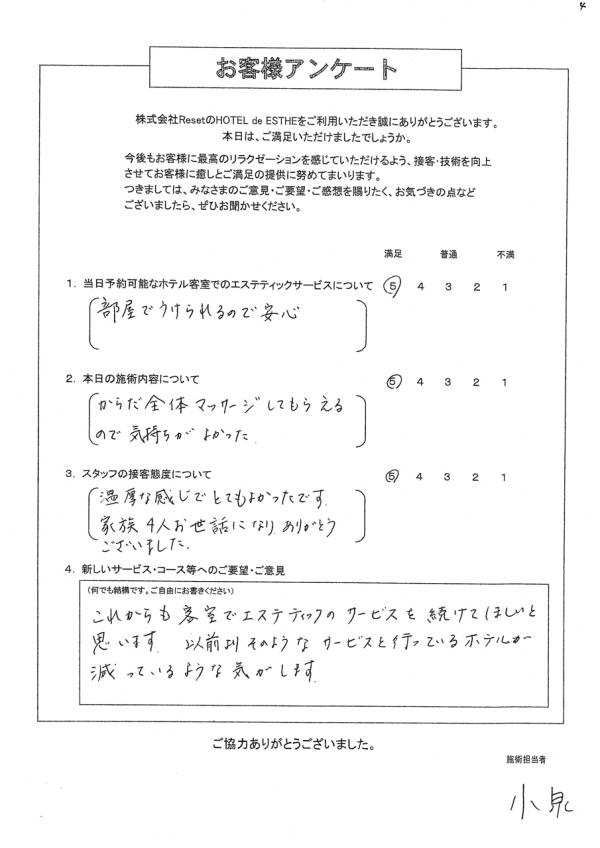 4
お客様アンケート
株式会社ResetのHOTEL de ESTHEをご利用いただき誠にありがとうございます。
本日は、ご満足いただけましたでしょうか。
今後もお客様に最高のリラクゼーションを感じていただけるよう、接客・技術を向上
させてお客様に癒しとご満足の提供に努めてまいります。
つきましては、みなさまのご意見・ご要望・ご感想を賜りたく、お気づきの点など
ございましたら、ぜひお聞かせください。
満足 普通 不満
1. 当日予約可能なホテル客室でのエステティックサービスについて 5 4 3 2 1
部屋でうけられるので安心
2. 本日の施術内容について 5 4 3 2 1
からだ全体マッサージしてもらえる
ので気持ちがよかった.
3. スタッフの接客態度について 5 4 3 2 1
温厚な感じでとてもよかったです.
家族4人お世話になり.ありがとう
ございました.
4. 新しいサービス・コース等へのご要望・ご意見
(何でも結構です。ご自由にお書きください)
これからも客室でエステティックのサービスを続けてほしいと
思います. 以前よりそのようなサービスを行っているホテルが
減っているような気がします.
ご協力ありがとうございました。
施術担当者
小泉